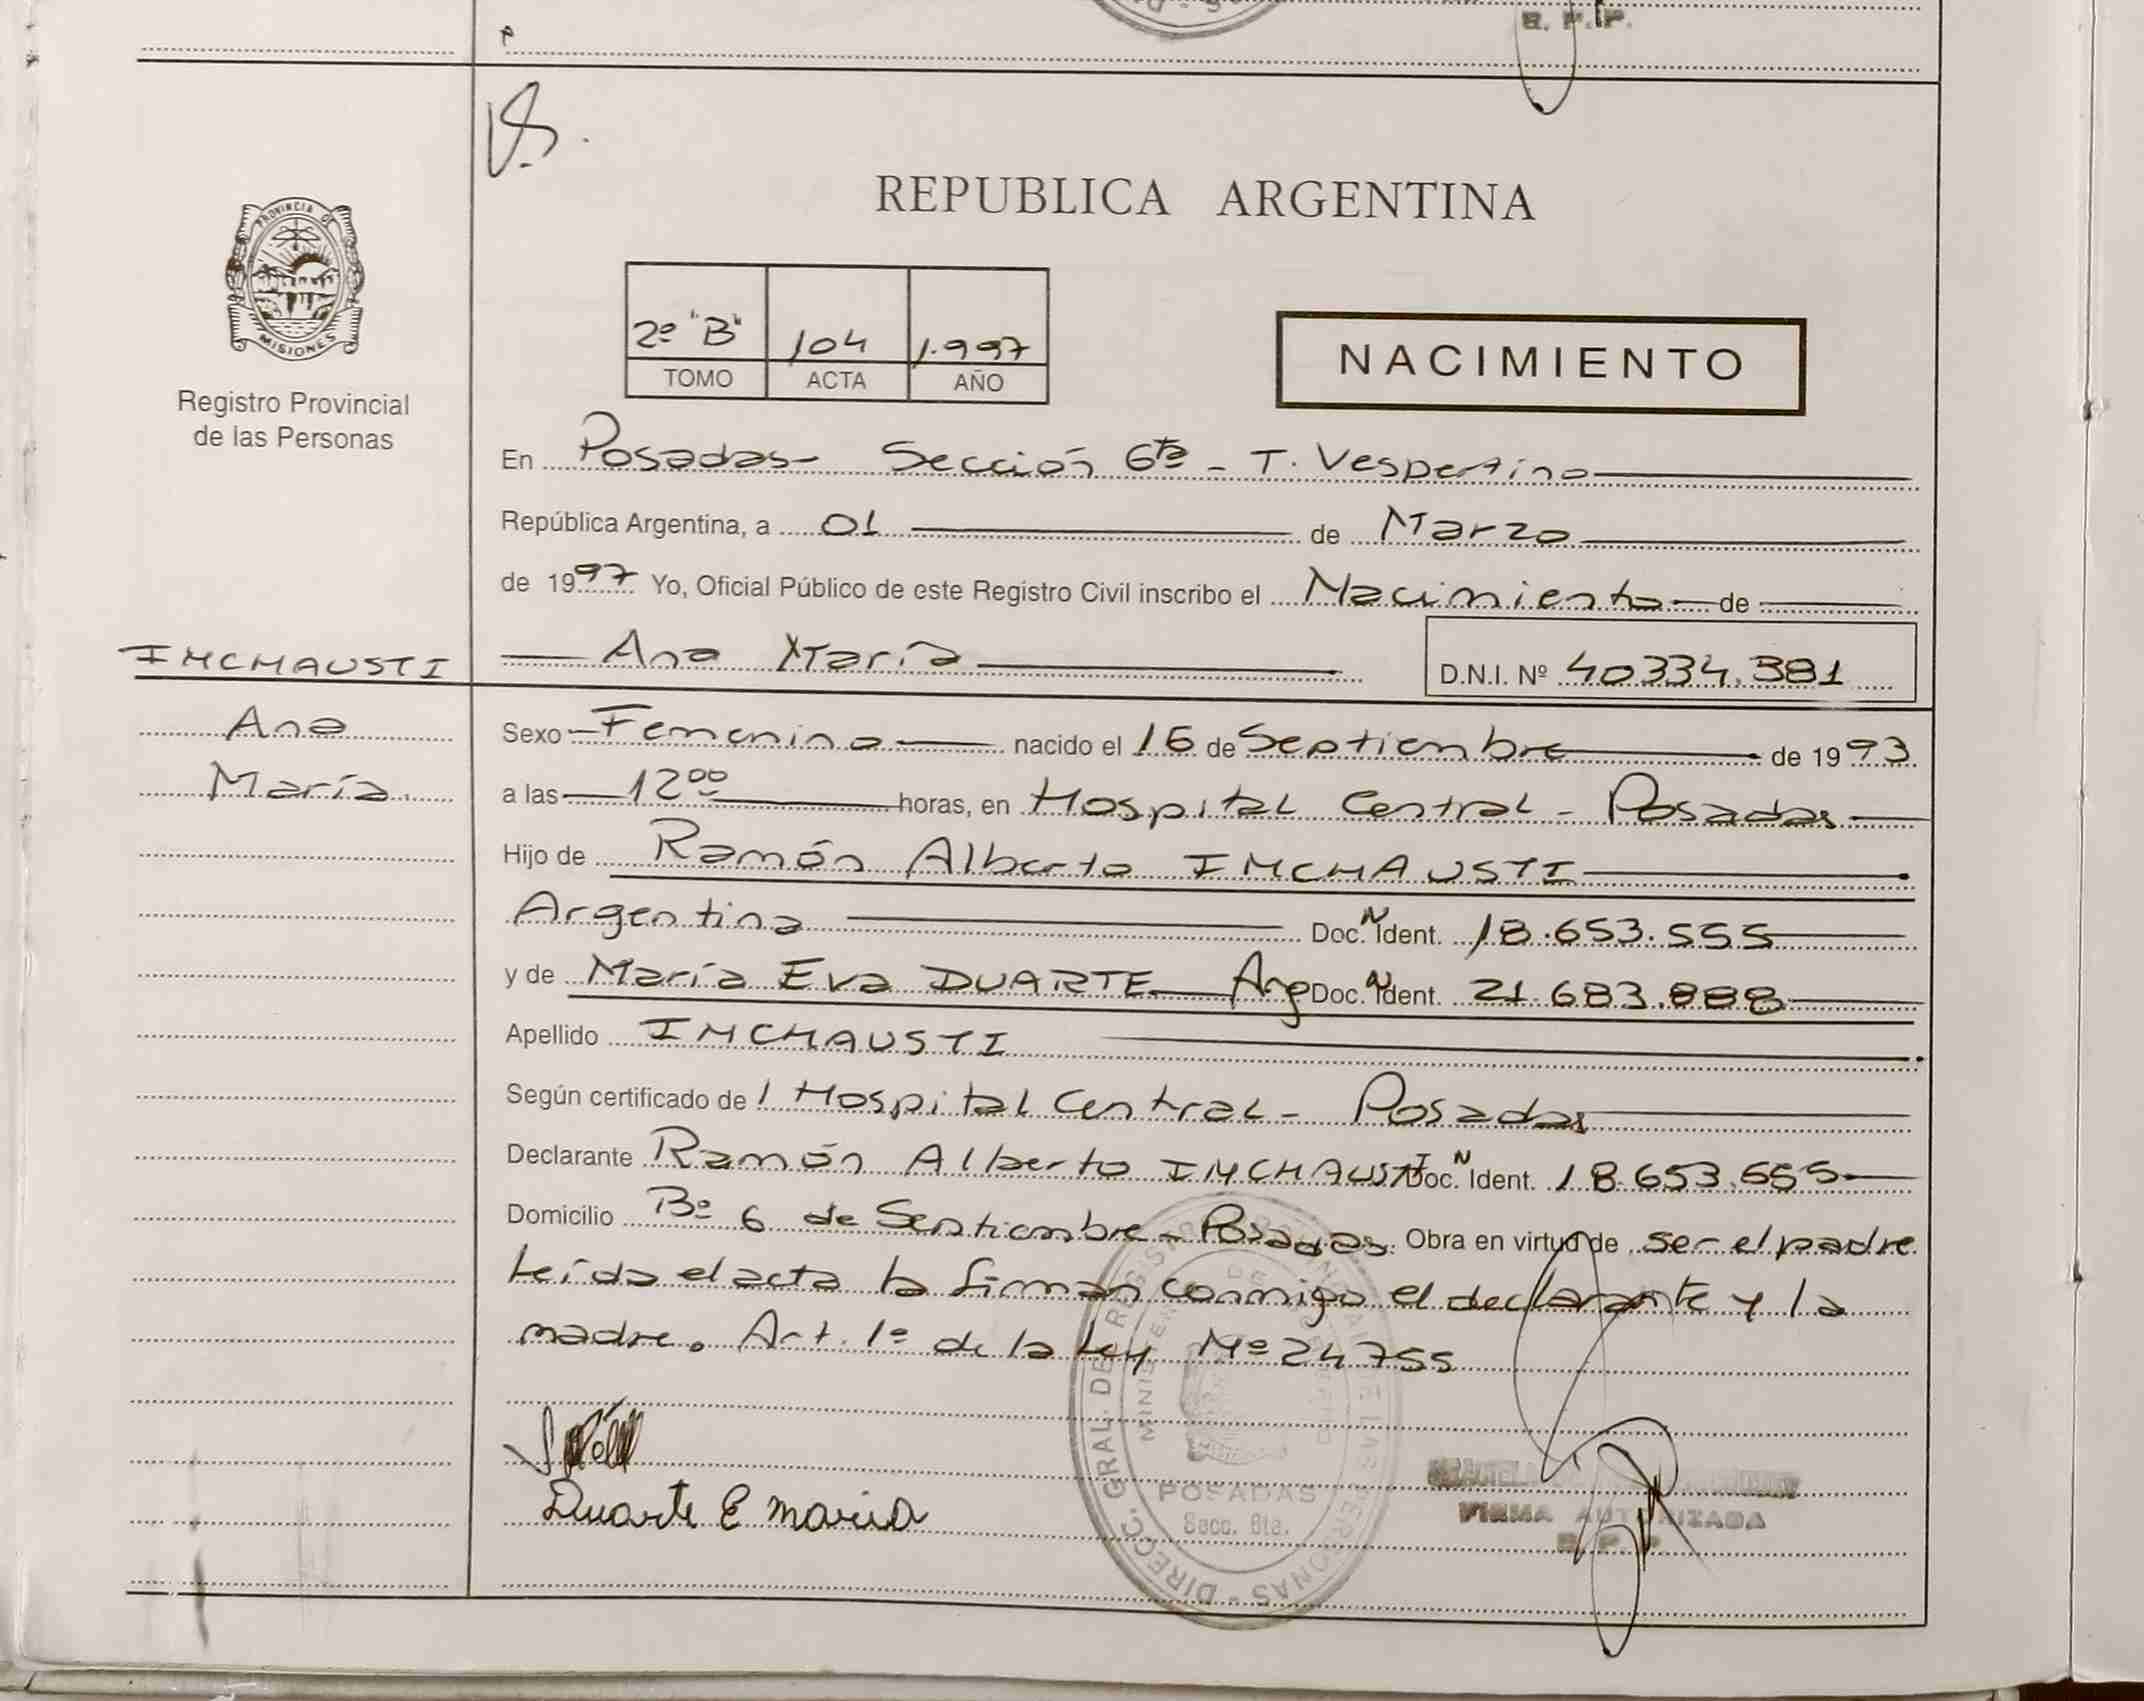 R. P. P.
REPUBLICA ARGENTINA
PROVINCIA DE
MISIONES
Registro Provincial
de las Personas
2º "B" 104 1.997
TOMO ACTA AÑO
NACIMIENTO
En Posadas- Sección 6ta - T. Vespertino
República Argentina, a 01 de Marzo
de 1997 Yo, Oficial Público de este Registro Civil inscribo el Nacimiento de
IMCHAUSTI
Ana María
D.N.I. Nº 40334.381
Ana
María.
Sexo Femenino nacido el 16 de Septiembre de 1993
a las 12ºº horas, en Hospital Central - Posadas
Hijo de Ramón Alberto IMCHAUSTI
Argentina Doc. N Ident. 18.653.555
y de María Eva DUARTE Arg Doc. N Ident. 21.683.888
Apellido IMCHAUSTI
Según certificado de l Hospital Central - Posadas
Declarante Ramón Alberto IMCHAUSTI Doc. N Ident. 18.653.555
Domicilio Bº 6 de Septiembre - Posadas. Obra en virtud de ser el padre
Leída el acta la firman conmigo el declarante y la
madre. Art. 1º de la Ley Nº 24755
Duarte E maria
DIRECC. GRAL. DEL REGISTRO PROVINCIAL DE LAS PERSONAS
MINISTERIO DE GOBIERNO
POSADAS
Secc. 6ta.
FIRMA AUTORIZADA
R. P. P.